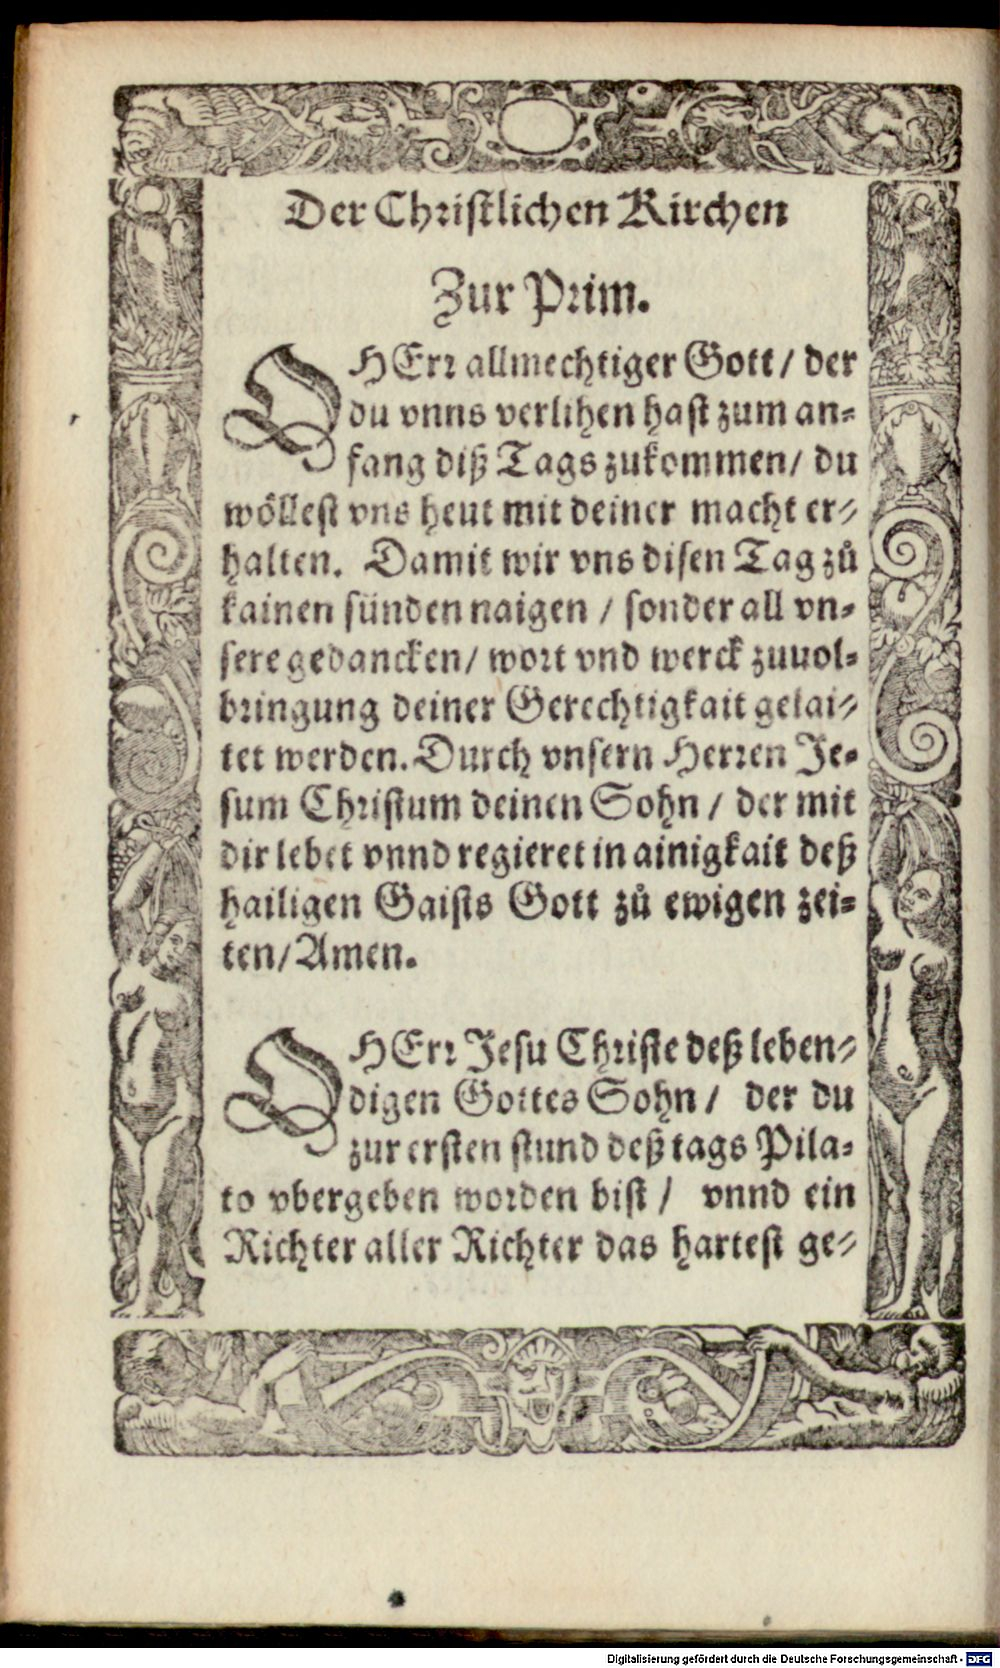 Der Christlichen Kirchen
Zur Prim.
O HErr allmechtiger Gott / der
du vnns verlihen hast zum an-
fang diß Tags zukommen / du
wöllest vns heut mit deiner macht er-
halten. Damit wir vns disen Tag zů
kainen sünden naigen / sonder all vn-
sere gedancken / wort vnd werck zuuol-
bringung deiner Gerechtigkait gelai-
tet werden. Durch vnsern Herren Je-
sum Christum deinen Sohn / der mit
dir lebet vnnd regieret in ainigkait deß
hailigen Gaists Gott zů ewigen zei-
ten / Amen.
O HErr Jesu Christe deß leben-
digen Gottes Sohn / der du
zur ersten stund deß tags Pila-
to vbergeben worden bist / vnnd ein
Richter aller Richter das hartest ge-
Digitalisierung gefördert durch die Deutsche Forschungsgemeinschaft - DFG